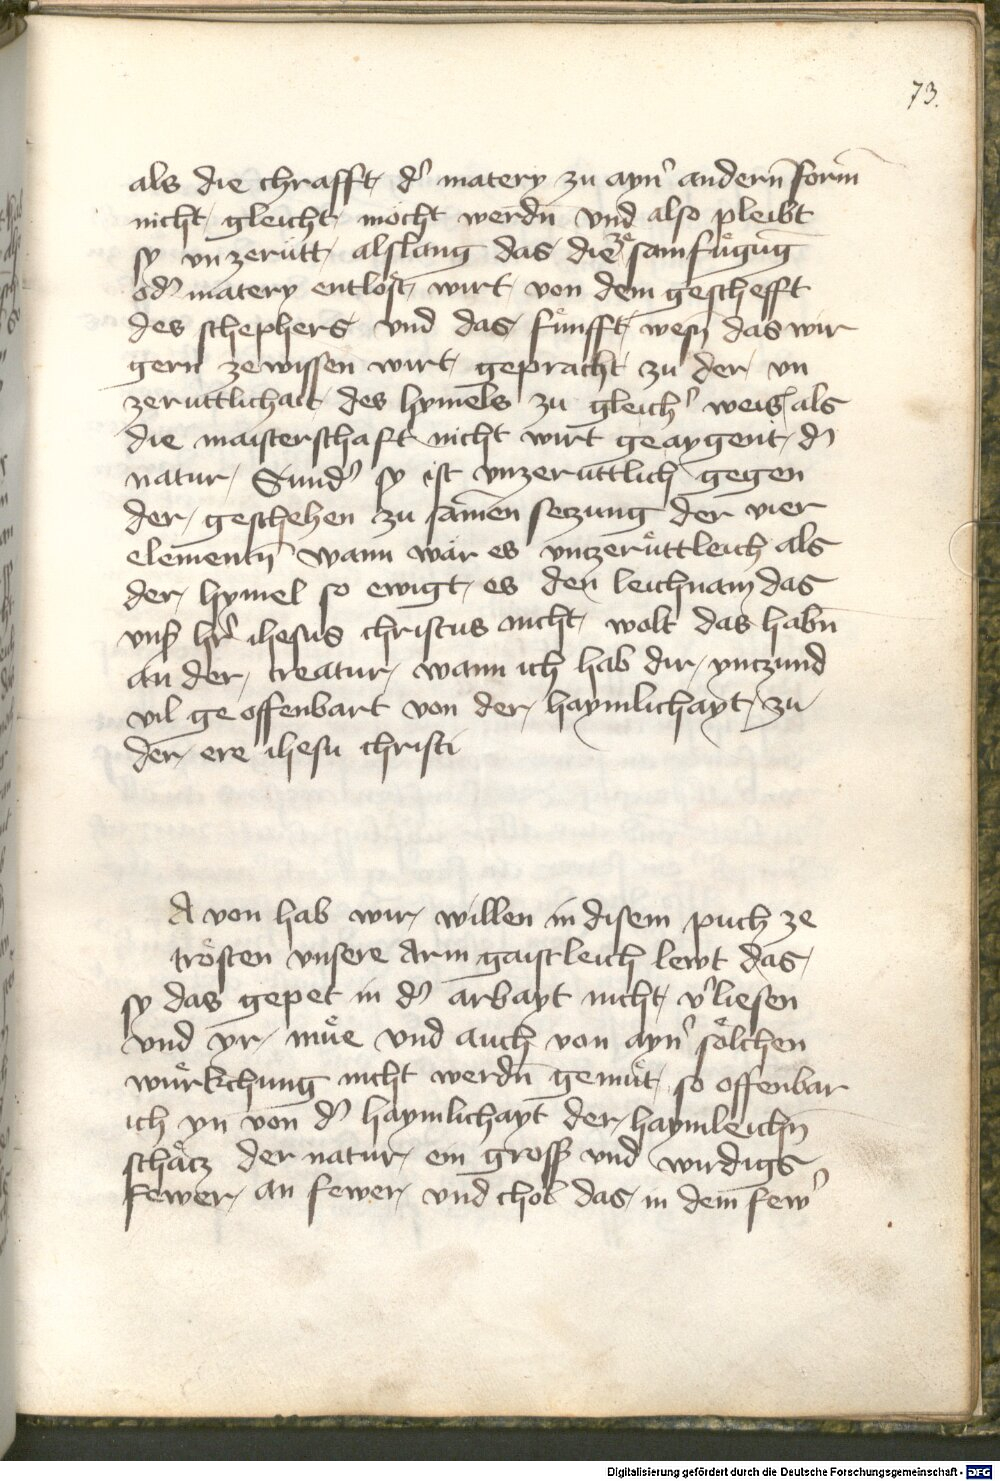 73.
als die chrafft d' matery zu ayn' andern form
nicht gleicht möcht werdn̄ vnd also pleibt
sy vnzerütt alslang das die ze samfügūg
od' matery entlöst wirt von dem geschefft
des schephers vnd das fünfft wesn̄ das wir
gern zewissen wirt gepracht zu der vn
zeruttlichait des hymels zu gleich' weis als
die maisterschaft nicht wirt geaygent d'
natur Sund' sy ist vnzeruttlich gegen
der geschehen zu samen seczung der vier
elementn̄ wann wär es vnczerüttleich als
der hymel so ewigt es den leichnam das
vnß hr̄ ihesus christus nicht wolt das habn̄
an der creatur wann ich hab dir ynczund
vil geoffenbart von der haymlichayt zu
der ere ihesu christi
A von hab wir willen in disem puch ze
trösten vnsere Arm gaistleich lewt das
sy das gepet in d' arbayt nicht v'liesen
vnd yr müe vnd auch von ayn' sölchen
würkchung nicht werdn̄ gemüt so offenbar
ich yn von d' haymlichayt der haymleichn̄
schäcz der natur ein gross vnd wirdigs
fewer an fewer vnd chob das in dem few'
Digitalisierung gefördert durch die Deutsche Forschungsgemeinschaft - DFG